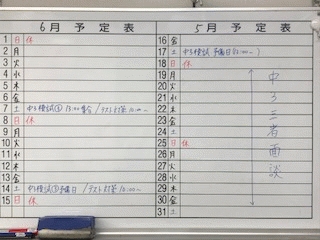 6月予定表
1 日 休
2 月
3 火
4 水
5 木
6 金
7 土 中3模試① 13:00集合 / テスト対策 10:00~
8 日 休
9 月
10 火
11 水
12 木
13 金
14 土 中3模試① 予備日 / テスト対策 10:00~
15 日 休
5月予定表
16 金
17 土 中3模試 予備日(13:00~)
18 日 休
19 月
20 火
21 水
22 木
23 金
24 土
25 日 休
26 月
27 火
28 水
29 木
30 金
31 土
中3三者面談